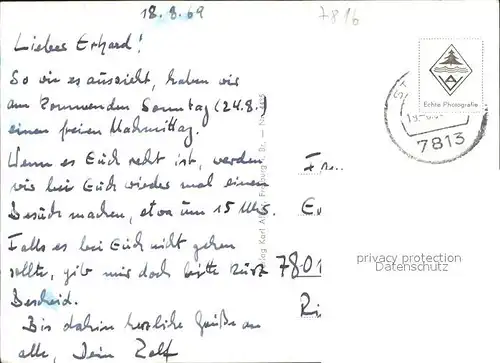 18.8.69
7816
Liebes Erhard!
So wie es aussieht, haben wir
am kommenden Sonntag (24.8.)
einen freien Nachmittag.
Wenn es Euch recht ist, werden
wir bei Euch wieder mal einen
Besuch machen, etwa um 15 Uhr.
Falls es bei Euch nicht gehen
sollte, gib mir doch bitte kurz
Bescheid.
Bis dahin herzliche Grüße an
alle, Dein
Echte Photografie
7813
Karl Freiburg Br. — No.
7801
privacy protection
Datenschutz